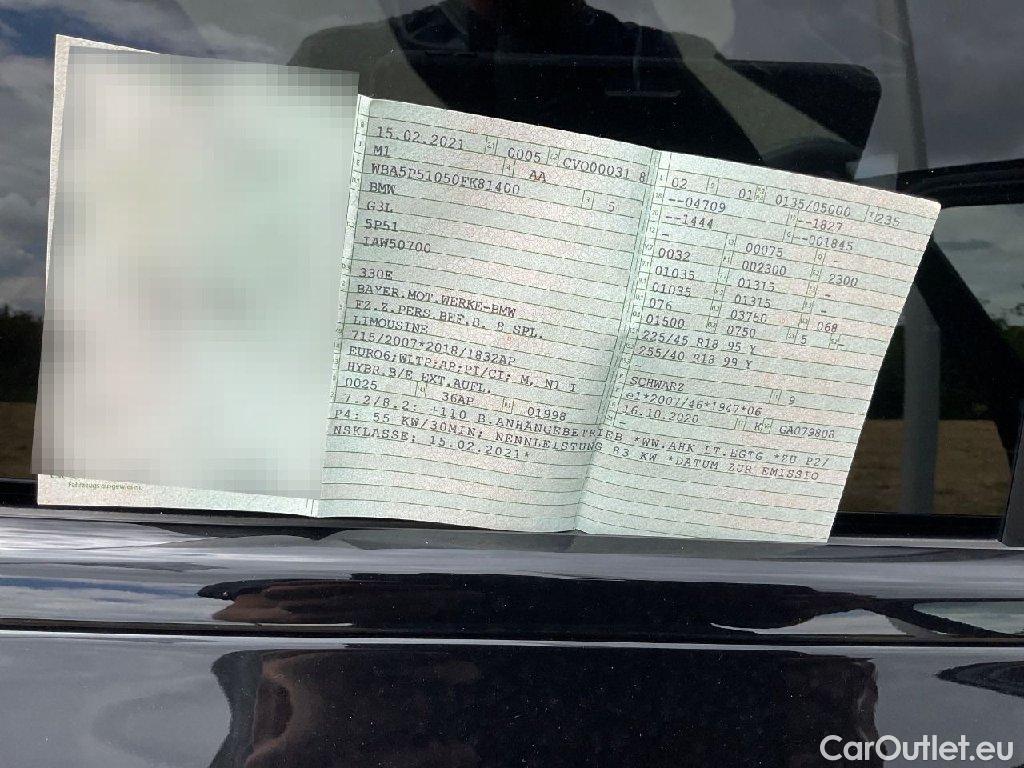 15.02.2021 0005 CVO00031 8
M1 AA
WBA5P51050FK81400 5
BMW
G3L
5P51
IAW50700
330E
BAYER.MOT.WERKE-BMW
FZ.Z.PERS.BEF.B. 8 SPL.
LIMOUSINE
715/2007*2018/1832AP
EURO6;WLTP;AP;PI/CI; M, N1 I
HYBR.B/E EXT.AUFL.
0025 36AP 01998
7.2/8.2: +110 B.ANHÄNGEBETRIEB *WW.AHK LT.EGTG *ZU P2/
P4: 55 KW/30MIN; NENNLEISTUNG 83 KW *DATUM ZUR EMISSIO
NSKLASSE: 15.02.2021*
02 01 0135/05000 235
--04709 --1827
--1444 -001845
- 00075 -
0032 002300 2300
01035 01315 -
01035 01315 -
076 03760 068
01500 0750 5 -
225/45 R18 95 Y
255/40 R18 99 Y
SCHWARZ 9
e1*2007/46*1947*06
16.10.2020 K GA079808
-
Fahrzeugs ausgewiesen.
CarOutlet.eu